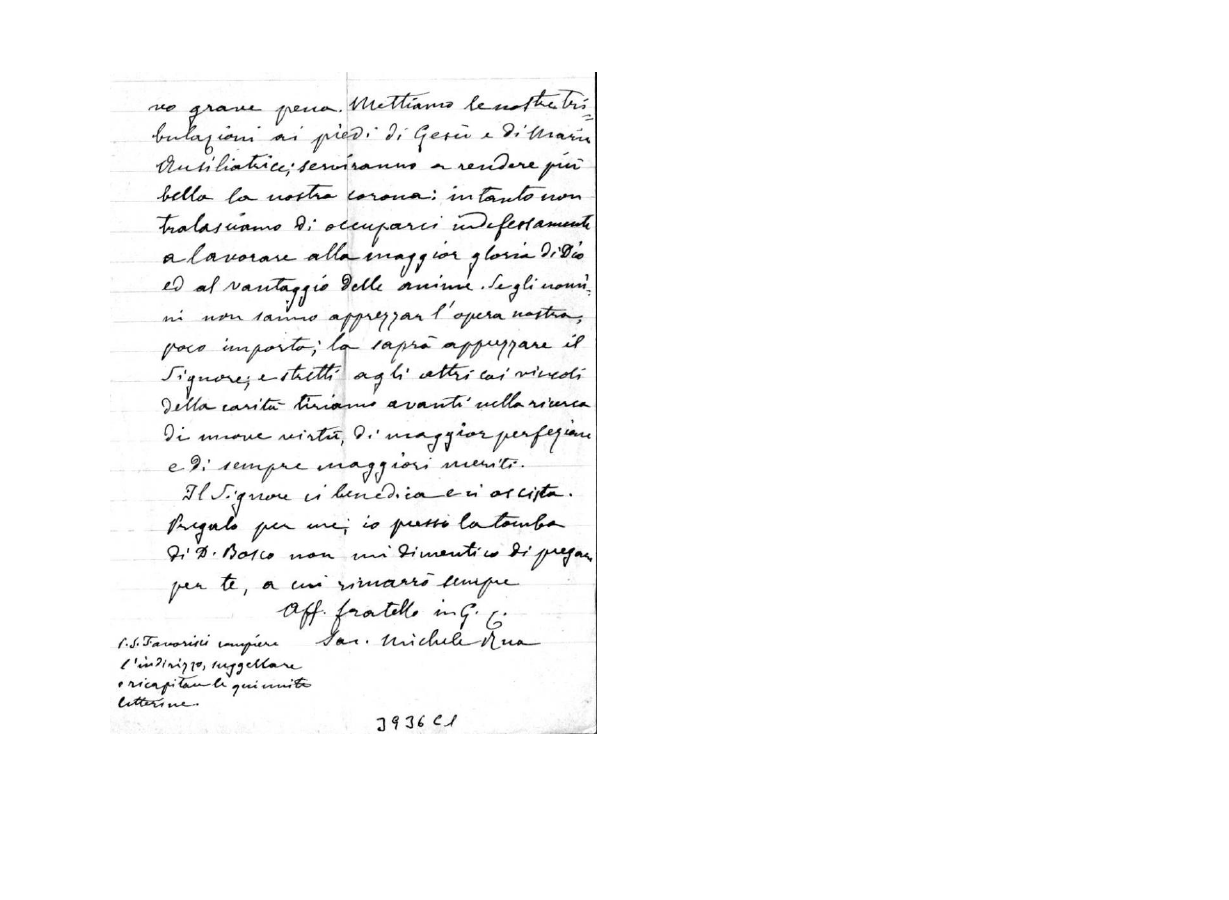 vo grave pena. Mettiamo le nostre tri-
bulazioni ai piedi di Gesù e di Maria
Ausiliatrice; serviranno a rendere più
bella la nostra corona: intanto non
tralasciamo di occuparci indefessamente
a lavorare alla maggior gloria di Dio
ed al vantaggio delle anime. Se gli uomi-
ni non sanno apprezzar l'opera nostra,
poco importa; la saprà apprezzare il
Signore; e stretti agli altri coi vincoli
della carità tiriamo avanti nella ricerca
di nuove virtù, di maggior perfezione
e di sempre maggiori meriti.
Il Signore ci benedica e ci assista.
Pregalo per me; io presso la tomba
di D. Bosco non mi dimentico di pregar
per te, a cui rimarrò sempre
Aff. fratello in G. C.
Sac. Michele Rua
P.S. Favorisci compiere
l'indirizzo, suggellare
e ricapitare le qui unite
letterine.
3936 C1